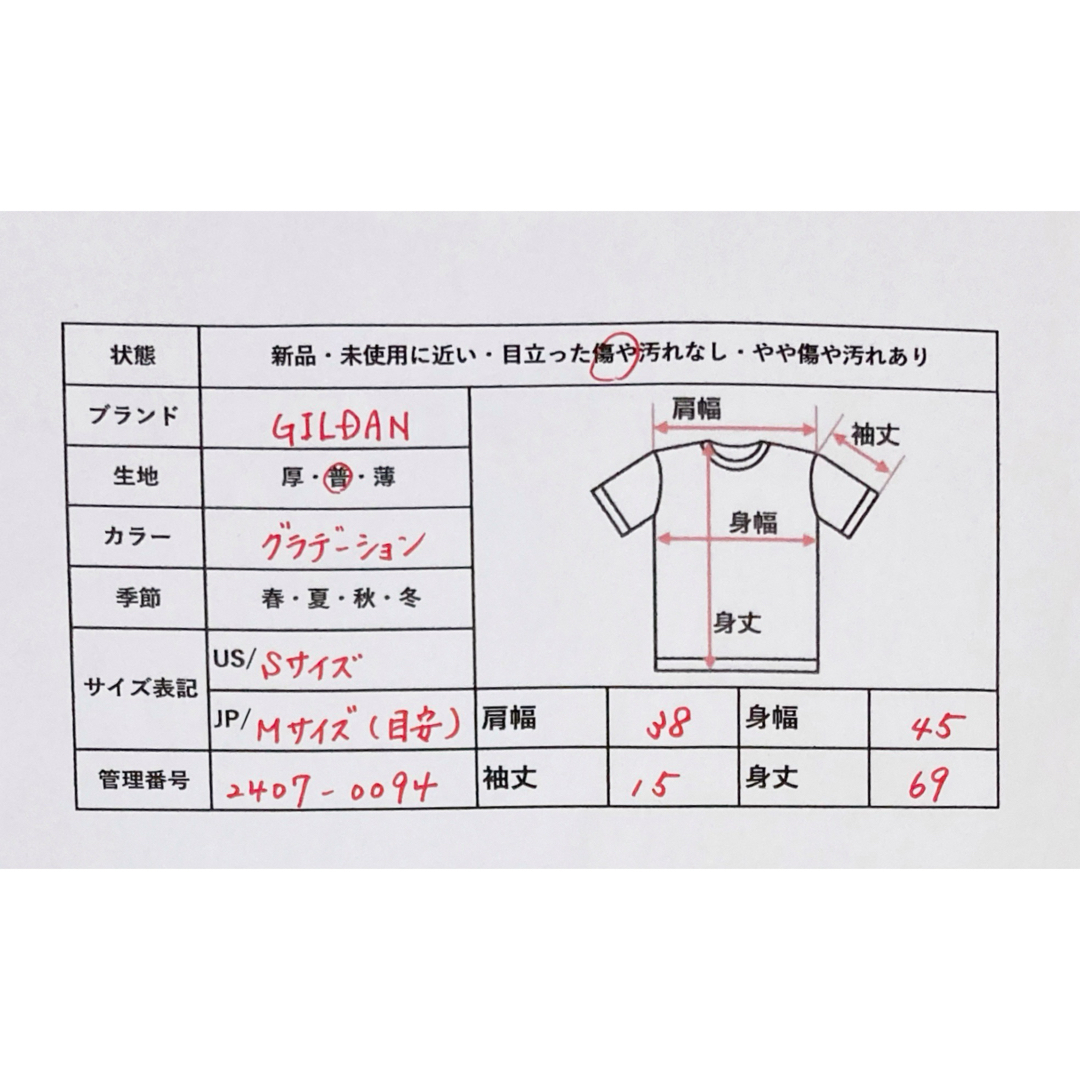 状態 新品・未使用に近い・目立った傷や汚れなし・やや傷や汚れあり
ブランド GILDAN
生地 厚・普・薄
カラー グラデーション
季節 春・夏・秋・冬
サイズ表記 US/Sサイズ
JP/Mサイズ(目安)
管理番号 2407-0094
肩幅
袖丈
身幅
身丈
肩幅 38 身幅 45
袖丈 15 身丈 69